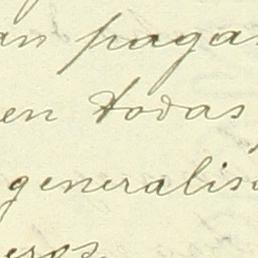 an pagas
en todas
generalis
eros